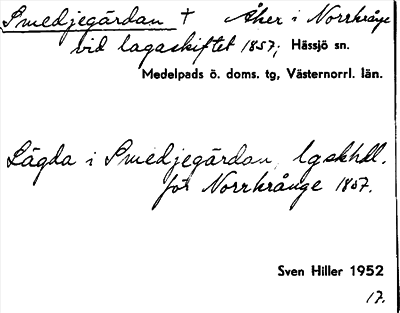 Smedjegärdan † Åker i Norrkrånge
vid lagaskiftet 1857; Hässjö sn.
Medelpads ö. doms. tg, Västernorrl. län.
Lägda i Smedjegärdan, lgskhdl.
för Norrkrånge 1857.
Sven Hiller 1952
17.